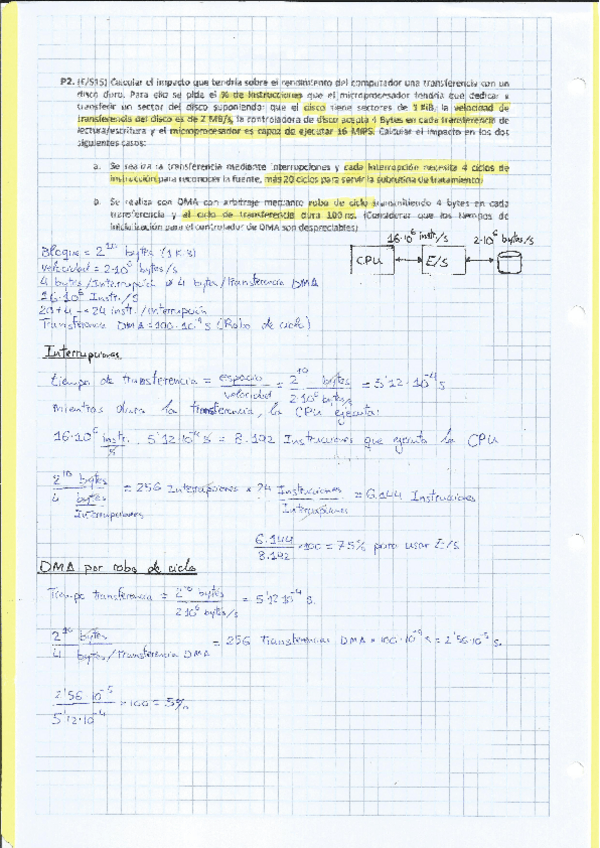 P2. (E/S15) Calcular el impacto que tendría sobre el rendimiento del computador una transferencia con un
disco duro. Para ello se pide el % de instrucciones que el microprocesador tendría que dedicar a
transferir un sector del disco suponiendo: que el disco tiene sectores de 1 KiB, la velocidad de
transferencia del disco es de 2 MB/s, la controladora de disco acepta 4 Bytes en cada transferencia de
lectura/escritura y el microprocesador es capaz de ejecutar 16 MIPS. Calcular el impacto en los dos
siguientes casos:
a. Se realiza la transferencia mediante interrupciones y cada interrupción necesita 4 ciclos de
instrucción para reconocer la fuente, más 20 ciclos para servir la subrutina de tratamiento.
b. Se realiza con DMA con arbitraje mediante robo de ciclo transmitiendo 4 bytes en cada
transferencia y el ciclo de transferencia dura 100 ns. (Considerar que los tiempos de
inicialización para el controlador de DMA son despreciables)
16·10⁶ instr/s 2·10⁶ bytes/s
CPU E/S
Bloque = 2¹⁰ bytes (1 KB)
velocidad = 2·10⁶ bytes/s
4 bytes/Interrupción o 4 bytes/transferencia DMA
16·10⁶ Instr./s
20+4 → 24 instr./interrupción
Transferencia DMA = 100·10⁻⁹ s (Robo de ciclo)
Interrupciones
tiempo de transferencia = espacio / velocidad = 2¹⁰ bytes / 2·10⁶ bytes/s = 5'12·10⁻⁴ s
mientras dura la transferencia, la CPU ejecuta:
16·10⁶ instr./s · 5'12·10⁻⁴ s = 8.192 Instrucciones que ejecuta la CPU
2¹⁰ bytes / 4 bytes/Interrupciones = 256 Interrupciones × 24 Instrucciones/Interrupciones = 6.144 Instrucciones
6.144 / 8.192 × 100 = 75% para usar E/S
DMA por robo de ciclo
Tiempo transferencia = 2¹⁰ bytes / 2·10⁶ bytes/s = 5'12·10⁻⁴ s.
2¹⁰ bytes / 4 bytes/Transferencia DMA = 256 Transferencias DMA × 100·10⁻⁹ s = 2'56·10⁻⁵ s.
2'56·10⁻⁵ / 5'12·10⁻⁴ × 100 = 5%